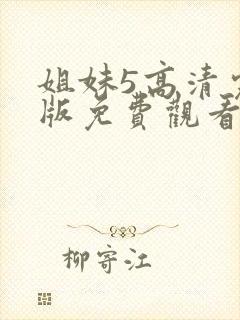 姐妹5高清
版免費觀看
柳寄江